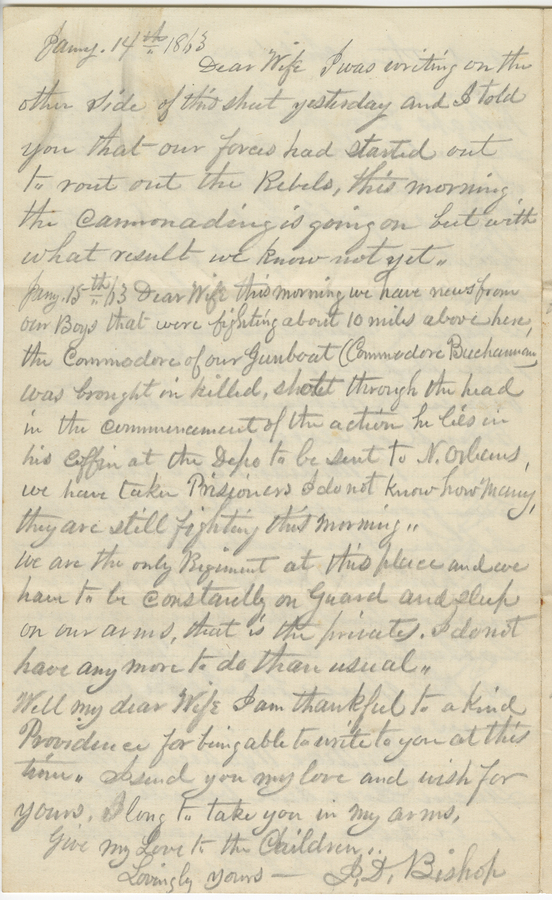 Jany. 14th 1863
Dear Wife I was writing on the
other side of this sheet yesterday and I told
you that our forces had started out
to rout out the Rebels, this morning
the Cannonading is going on but with
what result we know not yet "
Jany. 15th /63 Dear Wife this morning we have news from
our Boys that were fighting about 10 miles above here,
the Commodore of our Gunboat (Commodore Buchannan)
was brought in killed, shott through the head
in the commencement of the action he lies in
his coffin at the Depo to be sent to N. Orleans,
we have taken Prisioners I do not know how many,
they are still fighting this morning "
we are the only Regiment at this place and we
have to be constantly on Guard and sleep
on our arms, that is the privates. I do not
have any more to do than usual "
Well my dear Wife I am thankful to a kind
Providence for being able to write to you at this
time " I send you my love and wish for
yours. I long to take you in my arms.
Give my Love to the Children ..
Lovingly yours — J. D. Bishop